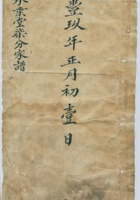 豐玖年正月初壹日
永業堂柒分家譜